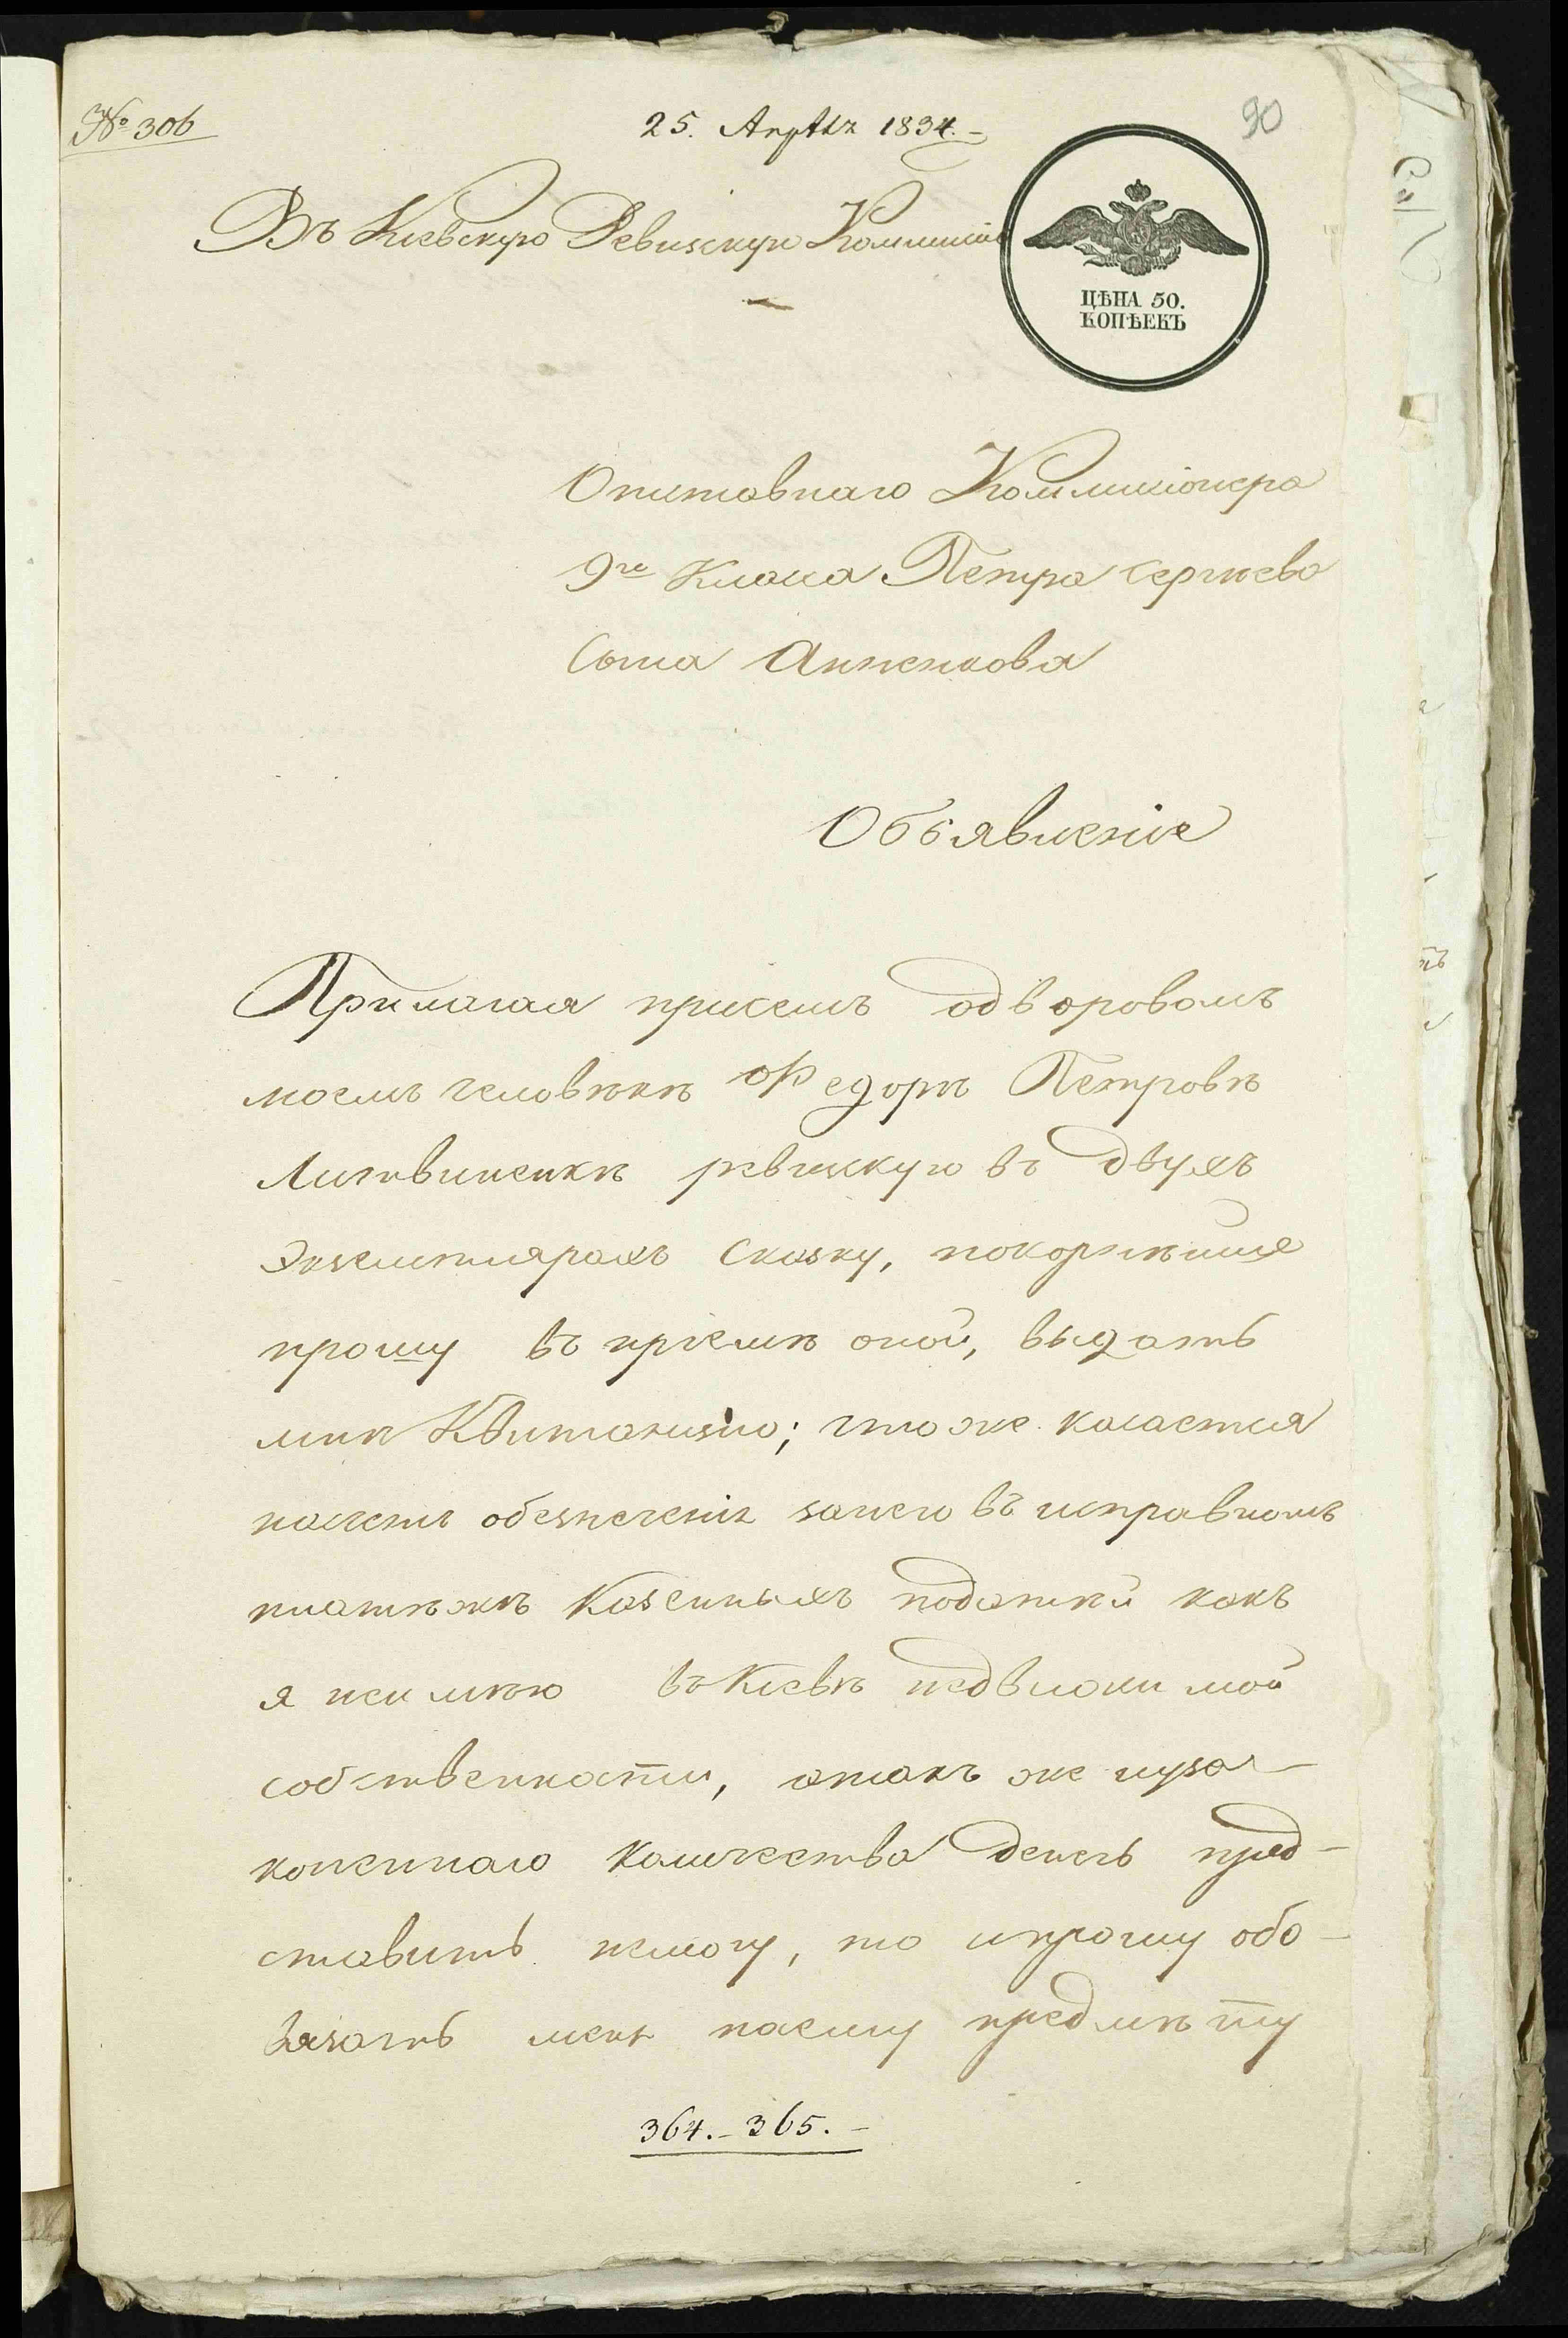 № 306
25. Апрѣля 1834.-
90
Въ Кіевскую Ревизскую Коммисію
ЦѢНА 50.
КОПѢЕКЪ
Отставнаго Коммисіонера
9го Класа Петра Сергѣева
Сына Анненкова
Объявленіе
Прилагая присемъ одворовомъ
моемъ человѣкѣ Федорѣ Петровѣ
Литвиненкѣ ревизскую въ двухъ
Экземплярахъ Сказку, покорнѣише
прошу въ пріемѣ оной, выдать
мнѣ Квитанизію; чтоже касается
насчетъ обезпеченія занего въ исправномъ
платежѣ Казенныхъ податей какъ
я неимѣю въ Кіевѣ недвижимой
собственности, атакъ же иуза-
коненнаго количества денегъ пред-
ставить немогу, то ипрошу обо-
вязать меня поему предмѣту
364.-365.-